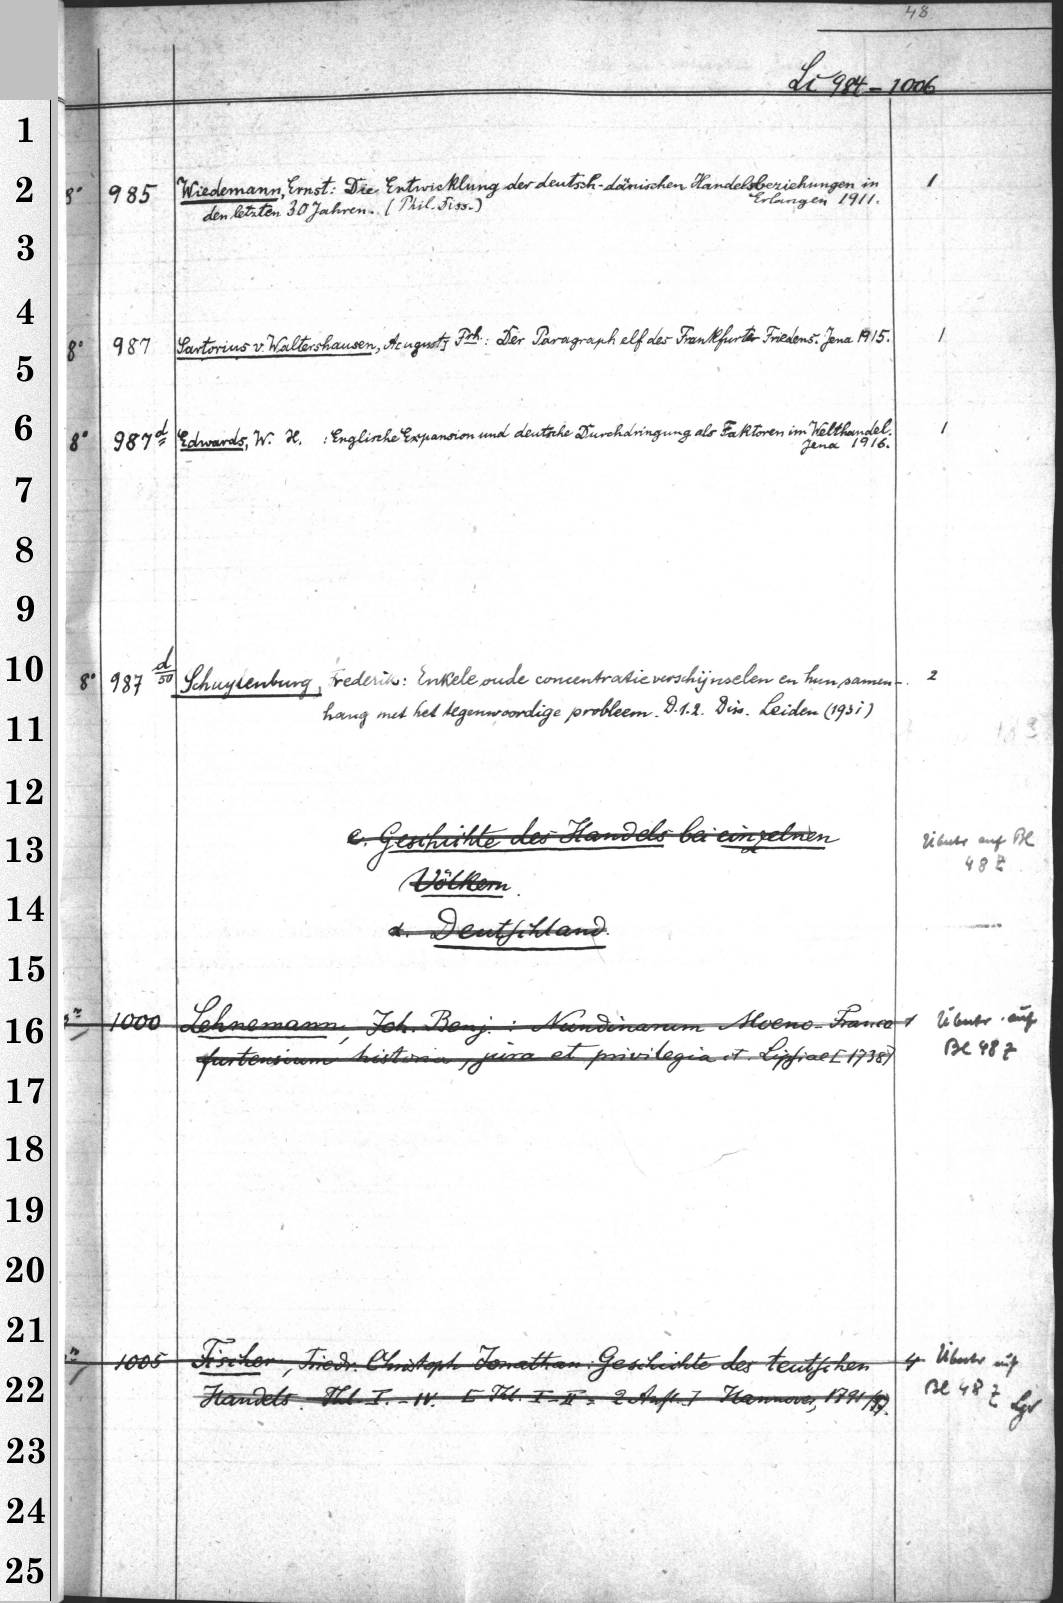 48
Li 984 – 1006
1
2
8° 985 Wiedemann, Ernst: Die Entwicklung der deutsch-dänischen Handelsbeziehungen in 1
den letzten 30 Jahren. (Phil. Diss.) Erlangen 1911.
3
4
8° 987 Sartorius v. Waltershausen, A[ugust] Frh.: Der Paragraph elf des Frankfurter Friedens. Jena 1915. 1
5
6
8° 987 d Edwards, W. H. : Englische Expansion und deutsche Durchdringung als Faktoren im Welthandel. 1
Jena 1916.
7
8
9
10
8° 987 d/50 Schuylenburg, Frederik: Enkele oude concentratieverschijnselen en hun samen- 2
hang met het tegenwoordige probleem. D.1.2. Diss. Leiden (1931)
11
12
13
c. Geschichte des Handels bei einzelnen Übertr auf Bl
48 Z
Völkern.
14
α. Deutschland.
15
16
1000 Lehnemann, Joh. Benj.: Nundinarum Moeno-Franco 1 Übertr. auf
furtensium historia, jura et privilegia et. Lipsiae [1738] Bl 48 Z
17
18
19
20
21
1005 Fischer, Friedr. Christoph Jonathan: Geschichte des teutschen 4 Übertr auf
22
Handels. Thl I. - IV. [Thl. I-II = 2 Aufl.] Hannover, 1791/97. Bl 48 Z
23
24
25